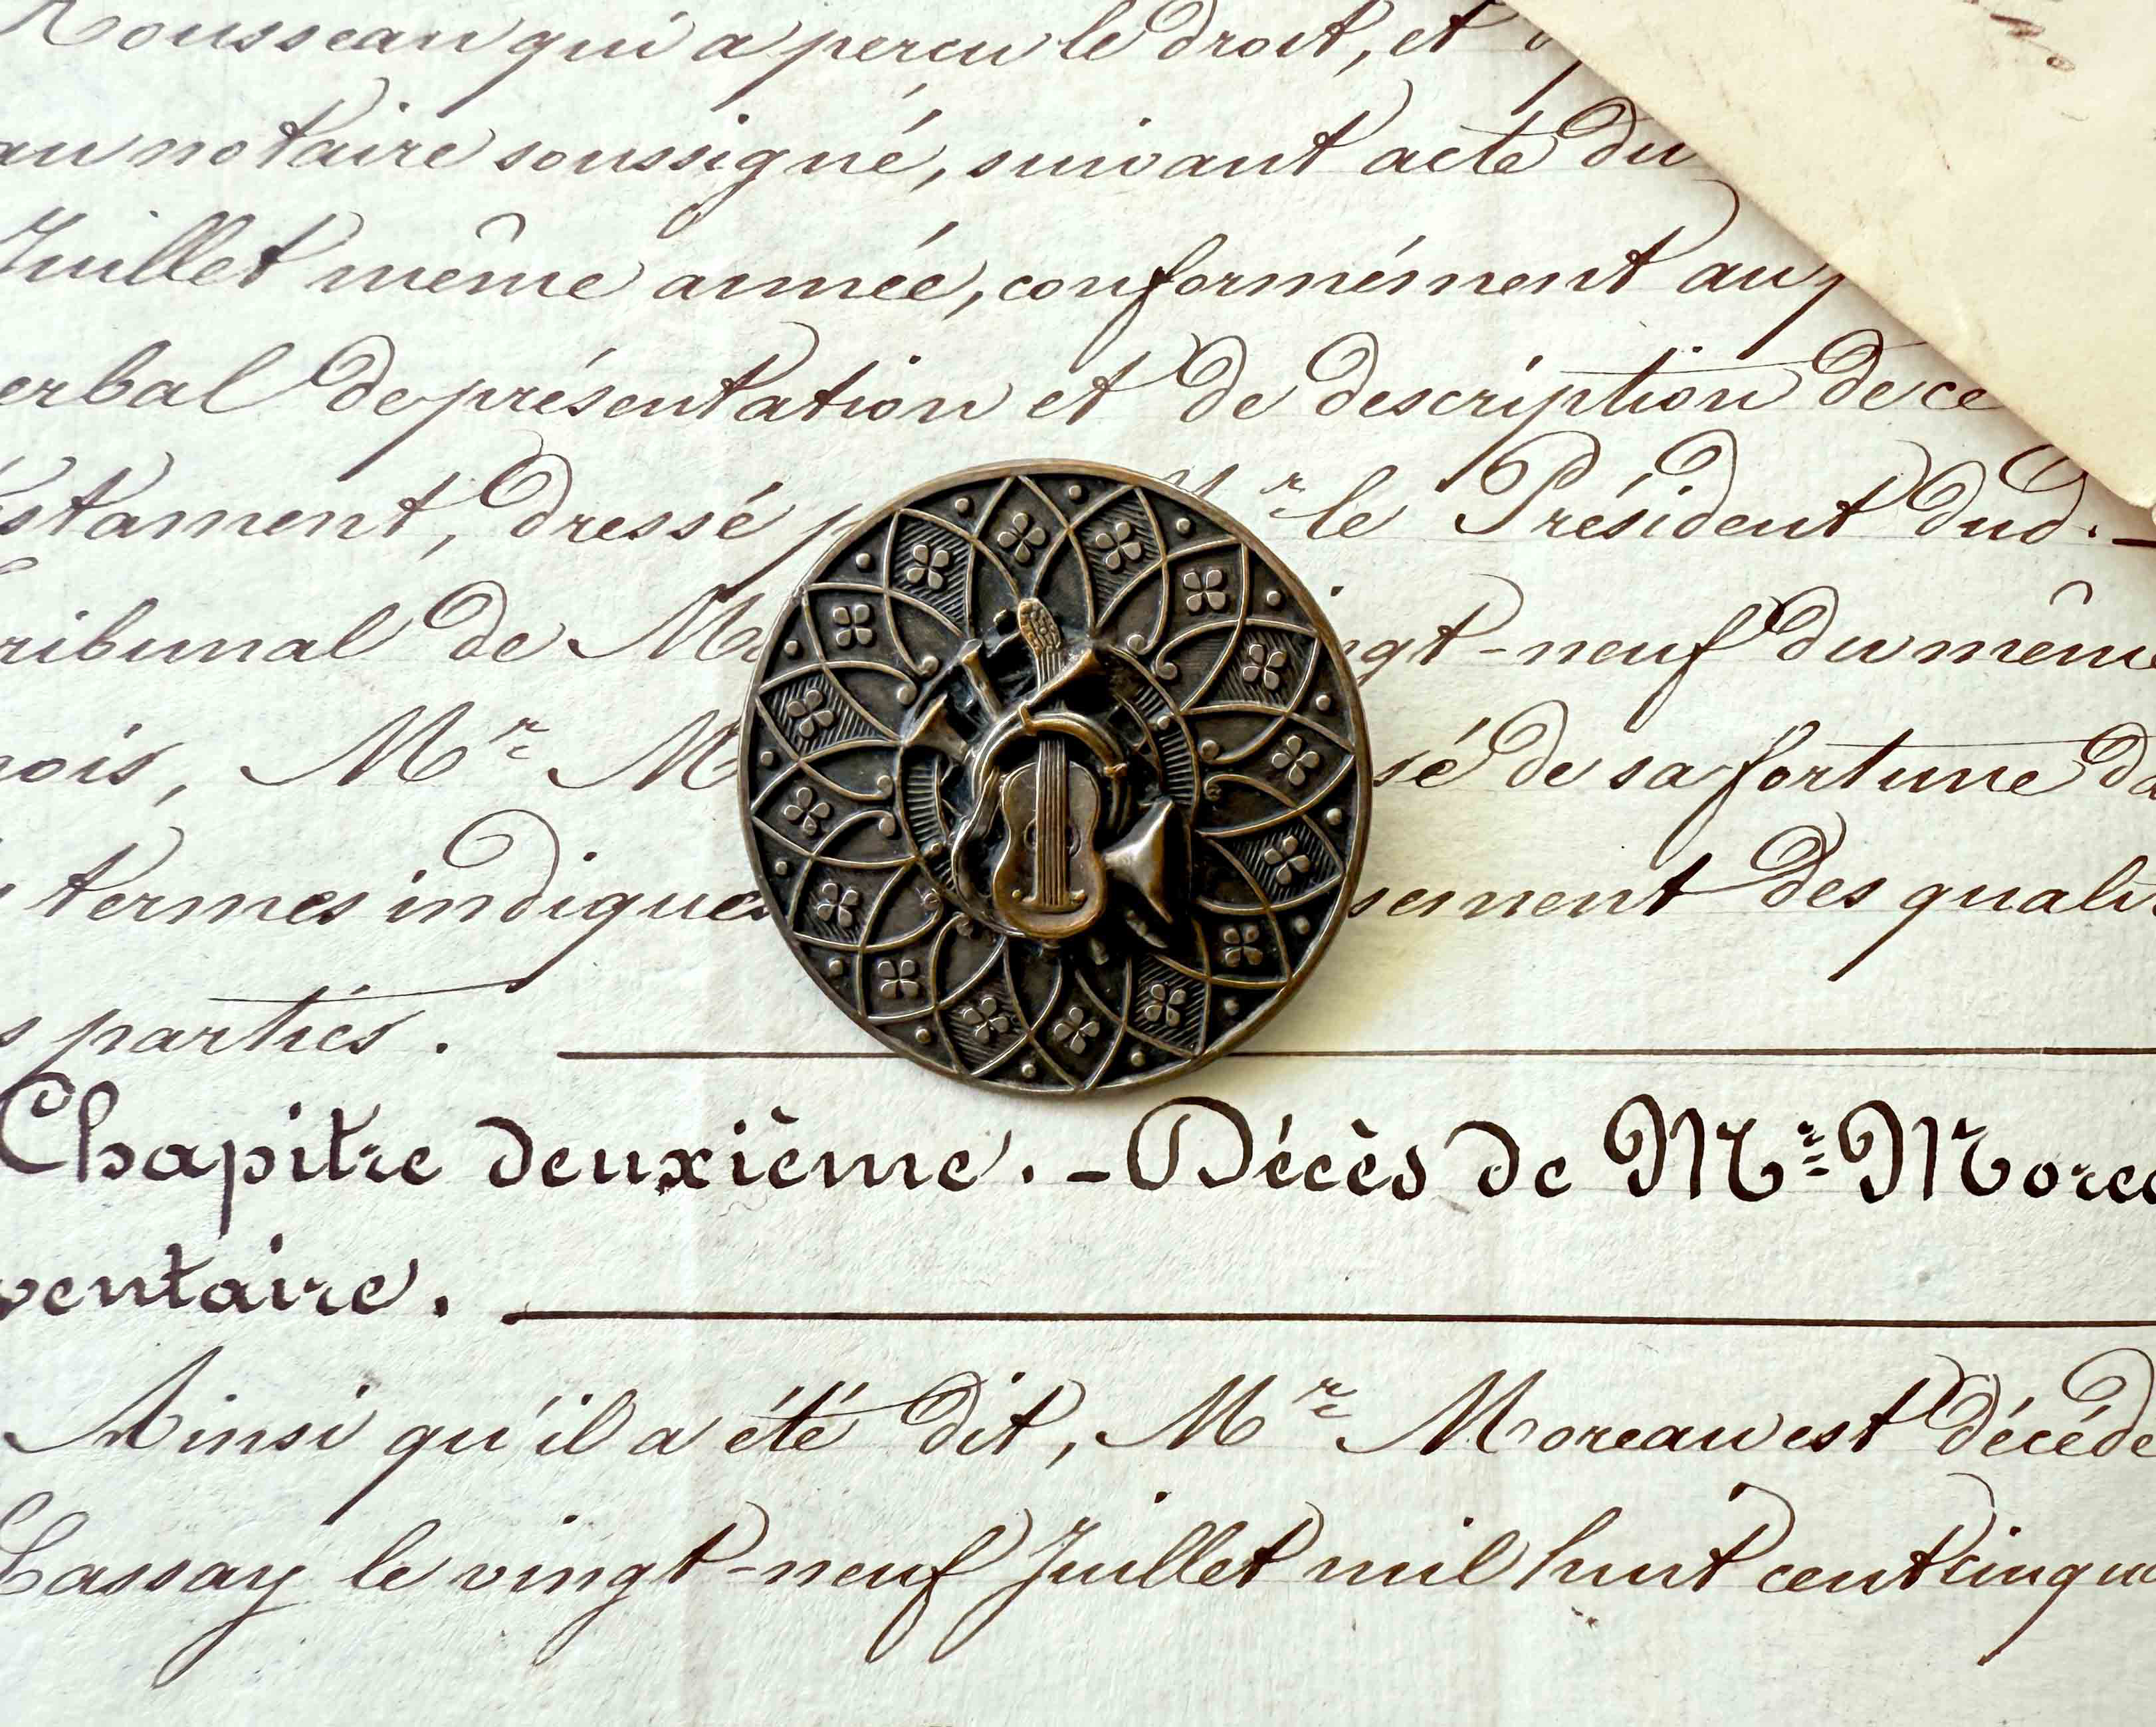 Rousseau qui a percu le droit, et
au notaire soussigné, suivant acte du
Juillet même année, conformément au
erbal de présentation et de description de ce
stament, dressé p Mr le Président dud.
ribunal de Ma ngt-neuf du même
mois, Mr M sé de sa fortune da
termes indiqués sement des quali
s parties.
Chapitre deuxième. - Décès de Mr Morea
ventaire.
Ainsi qu'il a été dit, Mr Moreau est décédé
Lassay le vingt-neuf Juillet mil huit cent cinqua